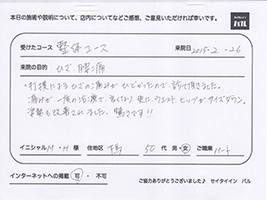 本日の施術や説明について、店内についてなどご感想、ご意見いただければ幸いです。
バル
受けたコース 整体コース 来院日 2015.2.26
来院の目的 ひざ、腰痛
・打撲によるひざの痛みがひどかったので、診て頂きました。
痛みが一度の治療で、良くなり、更に、ウエスト、ヒップがサイズダウン。
姿勢も改善されました。驚きです!!
イニシャル M・H 様 住地区 50 代 男・女 ご職業 パート
インターネットへの掲載 可・不可
ご協力ありがとうございました♪ セイタイイン バル